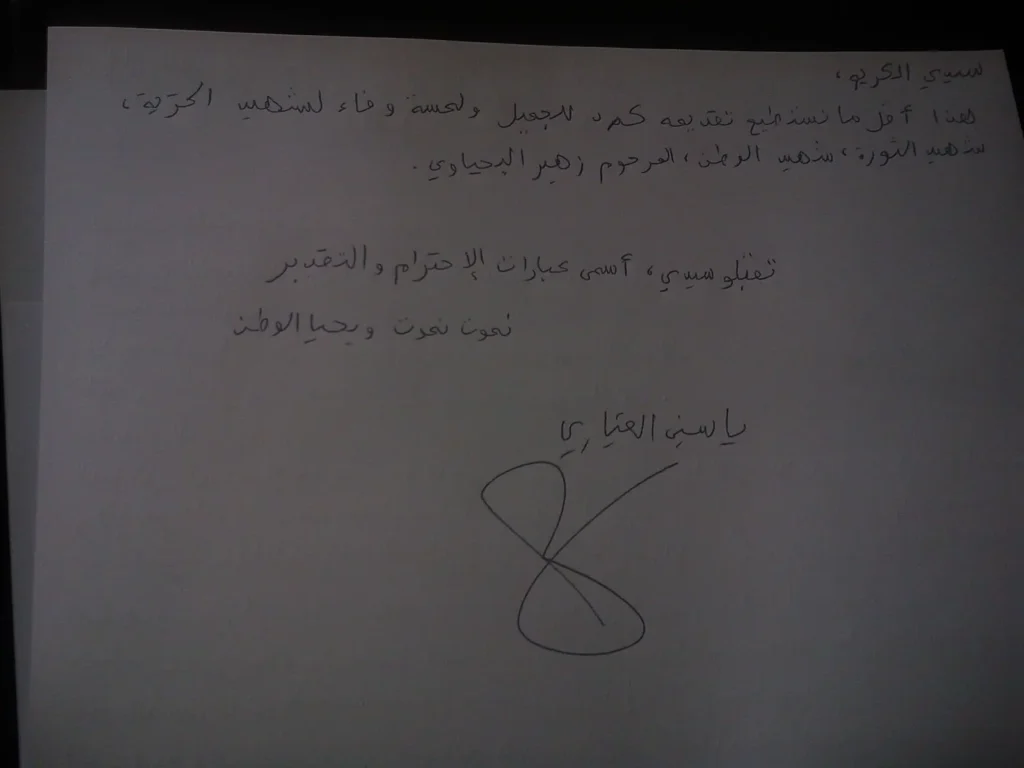 سيدي الكريم،
هذا أقل ما نستطيع تقديمه كرد للجميل ولمسة وفاء لشهيد الحرّية،
شهيد الثورة، شهيد الوطن، المرحوم زهير اليحياوي.
تقبلو سيدي، أسمى عبارات الإحترام والتقدير
نموت نموت ويحيا الوطن
ياسين العياري